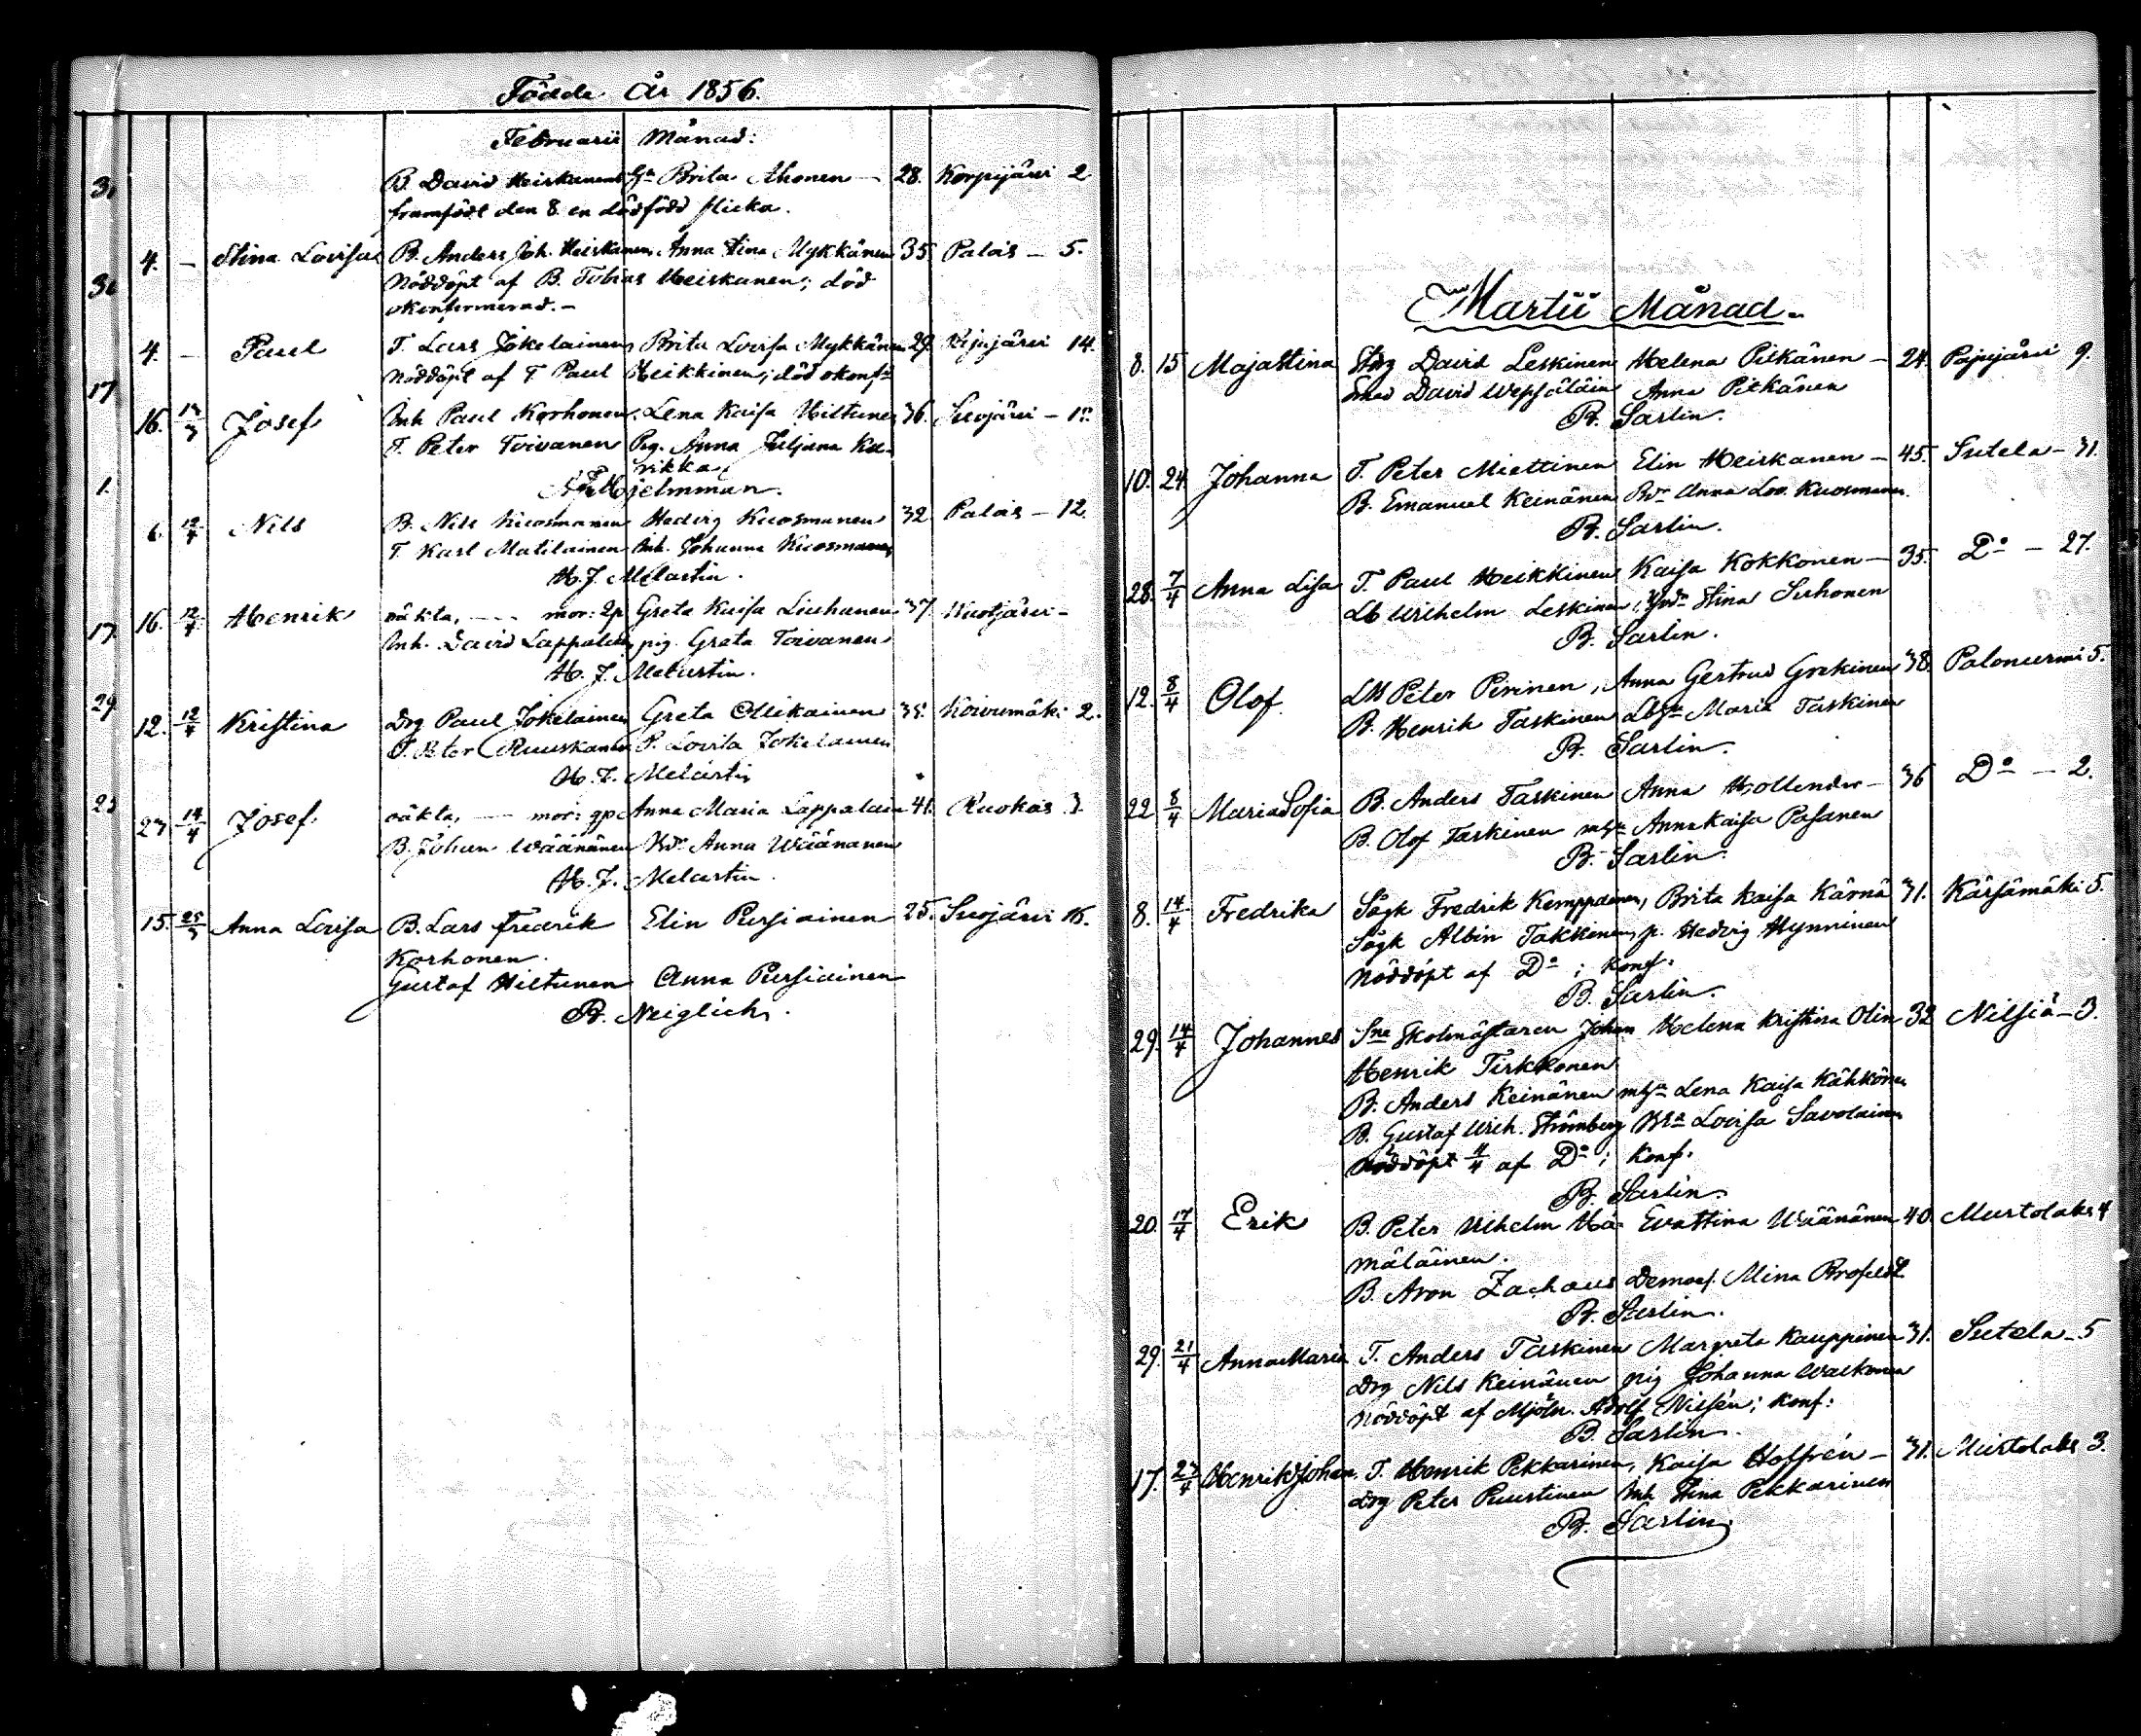 Födde År 1856.
Februarii Månad:
31 B. David Heiskanens h:n Brita Ahonen — 28. Korpijärvi 2
framfödt den 8 en dödfödd flicka.
4. — Stina Lovisa B. Anders Joh. Heiskanen, Anna Stina Mykkänen 35 Palois — 5.
Nöddöpt af B. Tobias Heiskanen; död
okonfirmerad. —
4. — Paul T. Lars Jokelainen, Brita Lovisa Mykkänen 29. 14.
Nöddöpt af T Paul Heikkinen; död okonf:
17
16. Josef Inh Paul Korhonen. Lena Kaisa Hiltunen 36. Suojärvi —
T. Peter Toivanen Pig. Anna Juljana Ka-
rikka.
Hjelmman.
1.
6. 12/4 Nils B. Nils Kuosmanen Hedvig Kuosmanen 32 Palois — 12.
T. Karl Matilainen Inh. Johanna Kuosmanen
H. J. Melartin.
17. 16. 12/4 Henrik oäkta, — mor: Greta Kaisa Liuhanen 37. —
Inh. David Lappalain pig. Greta Toivanen
H. J. Melartin.
29
12. 12/4 Kristina Drg Paul Jokelainen Greta Ollikainen Koivumäki 2.
T. Peter Ruuskanen P. Lovisa Jokelainen
H. J. Melartin
23
27 14/4 Josef. oäkta, — mor: Anna Maria Lappalain 41. Ruokas 3.
B. Johan Wäänänen Anna Wäänänen
H. J. Melartin.
15. 25/3 Anna Lovisa B. Lars Fredrik Elin Pursiainen 25. Suojärvi 15.
Korhonen.
Gustaf Hiltunen Anna Pursiainen
B. Neiglick.
Martii Månad.
8. 15 Maja Stina Drg David Leskinen Helena Pitkänen — 24. Pajujärvi 9.
Smed David Wepsäläin Anna Pitkänen
B. Sarlin.
10. 24. Johanna T. Peter Miettinen Elin Heiskanen — 45. Sutela — 31.
B. Emanuel Keinänen Anna Lov. Kuosmanen.
B. Sarlin.
28. 7/4 Anna Lisa T. Paul Heikkinen Kaisa Kokkonen — 35. D:o — 27.
Lb Wilhelm Leskinen, Stina Surhonen
B. Sarlin.
12. 8/4 Olof. Peter Pirinen, Anna Gertrud Grekinen 38 Palonurmi 5.
B. Henrik Taskinen Maria Taskinen
B. Sarlin.
22 8/4 Maria Sofia B. Anders Taskinen Anna Hollender — 36 D:o — 2.
B. Olof Taskinen Anna Kaisa Pasanen
B. Sarlin.
8. 14/4 Fredrika Sågk Fredrik Kemppainen, Brita Kaisa Kärnä 31. Kärsämäki 5.
Sågk Albin Takkinen, p. Hedvig Hynninen
Nöddöpt af D:o; konf:
B. Sarlin.
29. 14/4 Johannes Skolmästaren Johan Helena Kristina Olin 32 Nilsiä — 3.
Henrik Tirkkonen
B. Anders Keinänen Lena Kaisa Kähkönen
B. Gustaf Wilh. Strömberg Lovisa Savolainen
Nöddöpt 4/4 af D:o; Konf.
B. Sarlin.
20. 17/4 Erik B. Peter Wilhelm Hä- Eva Stina Wäänänen 40 Murtolaks 4
mäläinen.
B. Aron Zachæus Demois. Mina Brofeldt
B. Sarlin.
29. 21/4 Anna Maria T. Anders Taskinen Margreta Kauppinen 31. Sutela — 5
Drg Nils Keinänen pig Johanna Walkonen
Nöddöpt af Mjöln. Adolf Nissén; konf:
B. Sarlin.
17. 27/4 Henrik Johan T. Henrik Pekkarinen, Kaisa Hoffrén — 31. Murtolaks 3.
Drg Peter Puustinen Inh Stina Pekkarinen
B. Sarlin.